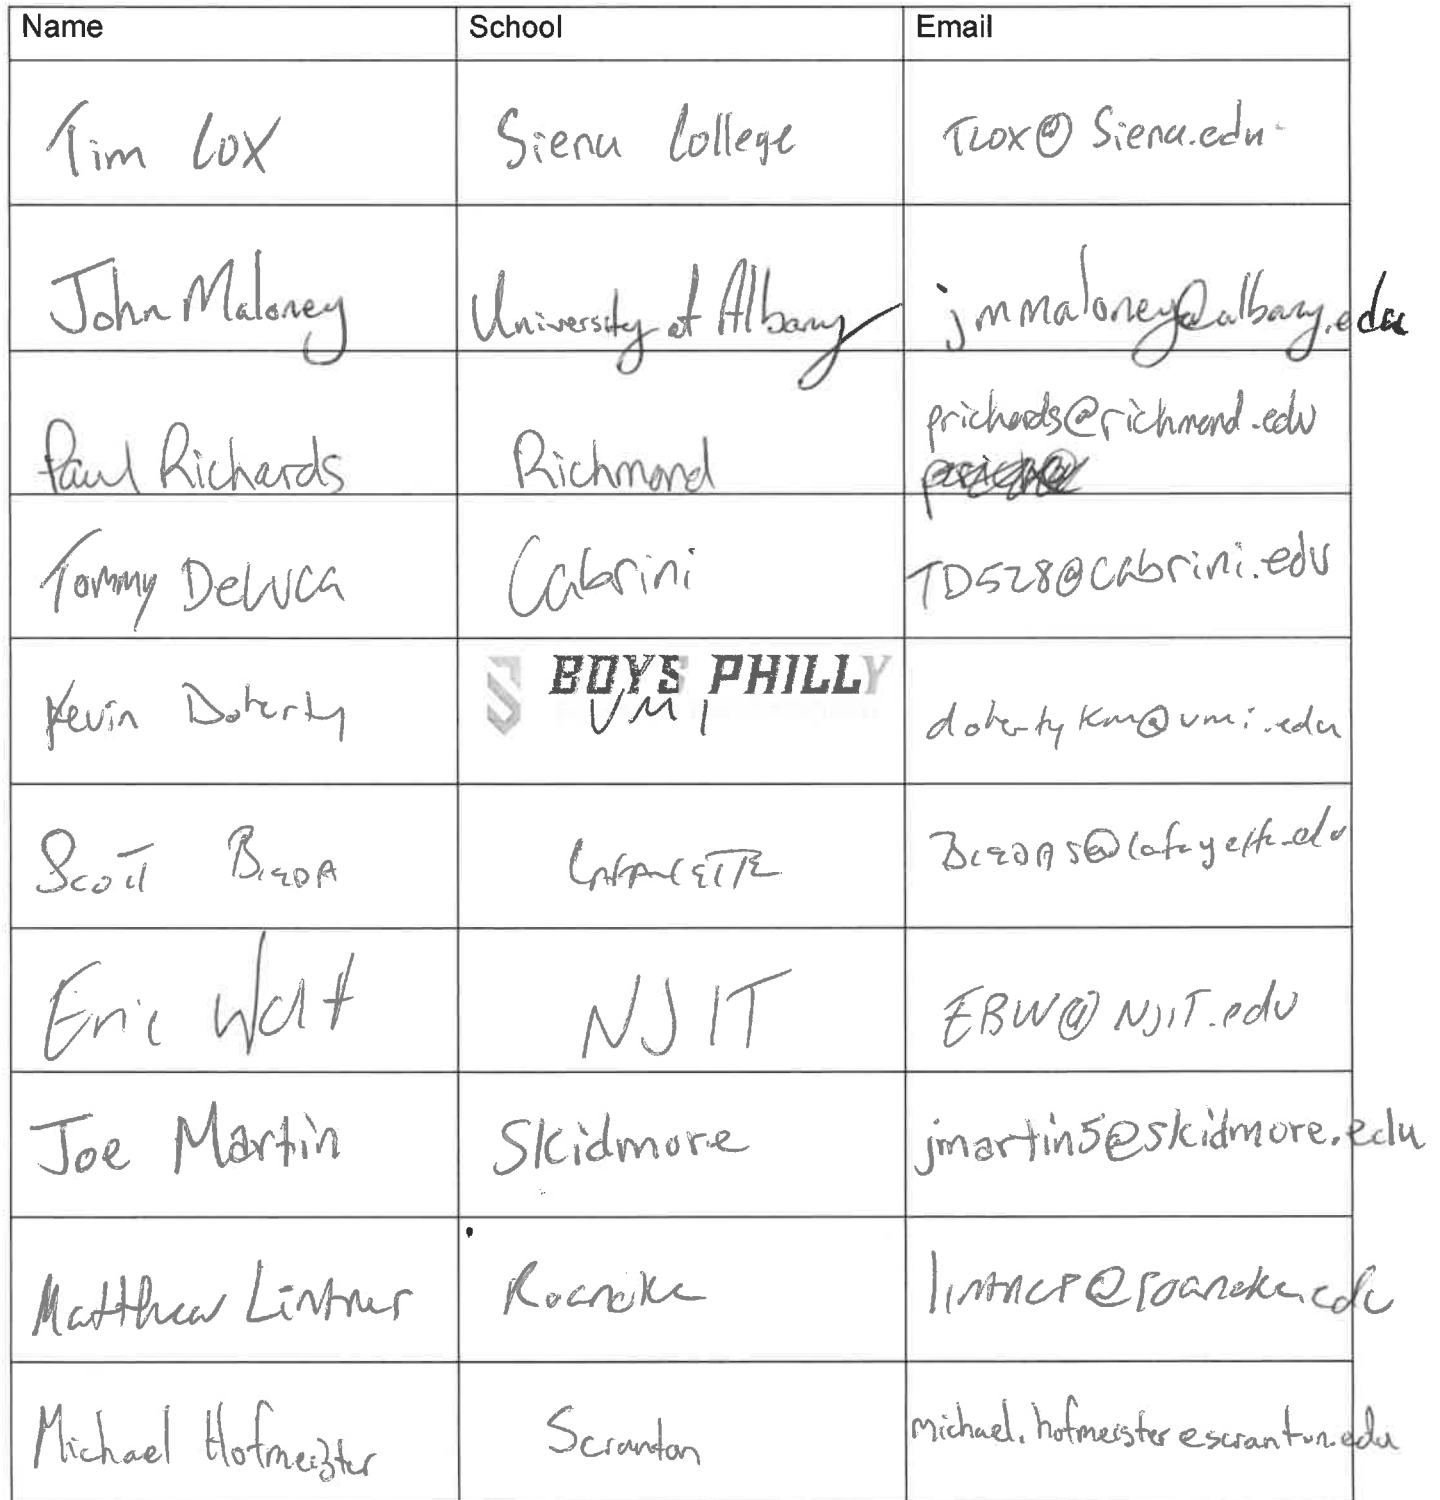 Name School Email
Tim Cox Siena College TCOX@Siena.edu
John Maloney University at Albany jmmaloney@albany.edu
Paul Richards Richmond prichards@richmond.edu
Tommy DeLuca Cabrini TD528@cabrini.edu
BOYS PHILLY
Kevin Doherty VMI dohertykm@vmi.edu
Scott BIEDA LAFAYETTE BIEDAS@lafayette.edu
Eric Wolf NJIT EBW@NJIT.edu
Joe Martin Skidmore jmartin5@skidmore.edu
Matthew Lintner Roanoke lintner@roanoke.edu
Michael Hofmeister Scranton michael.hofmeister@scranton.edu